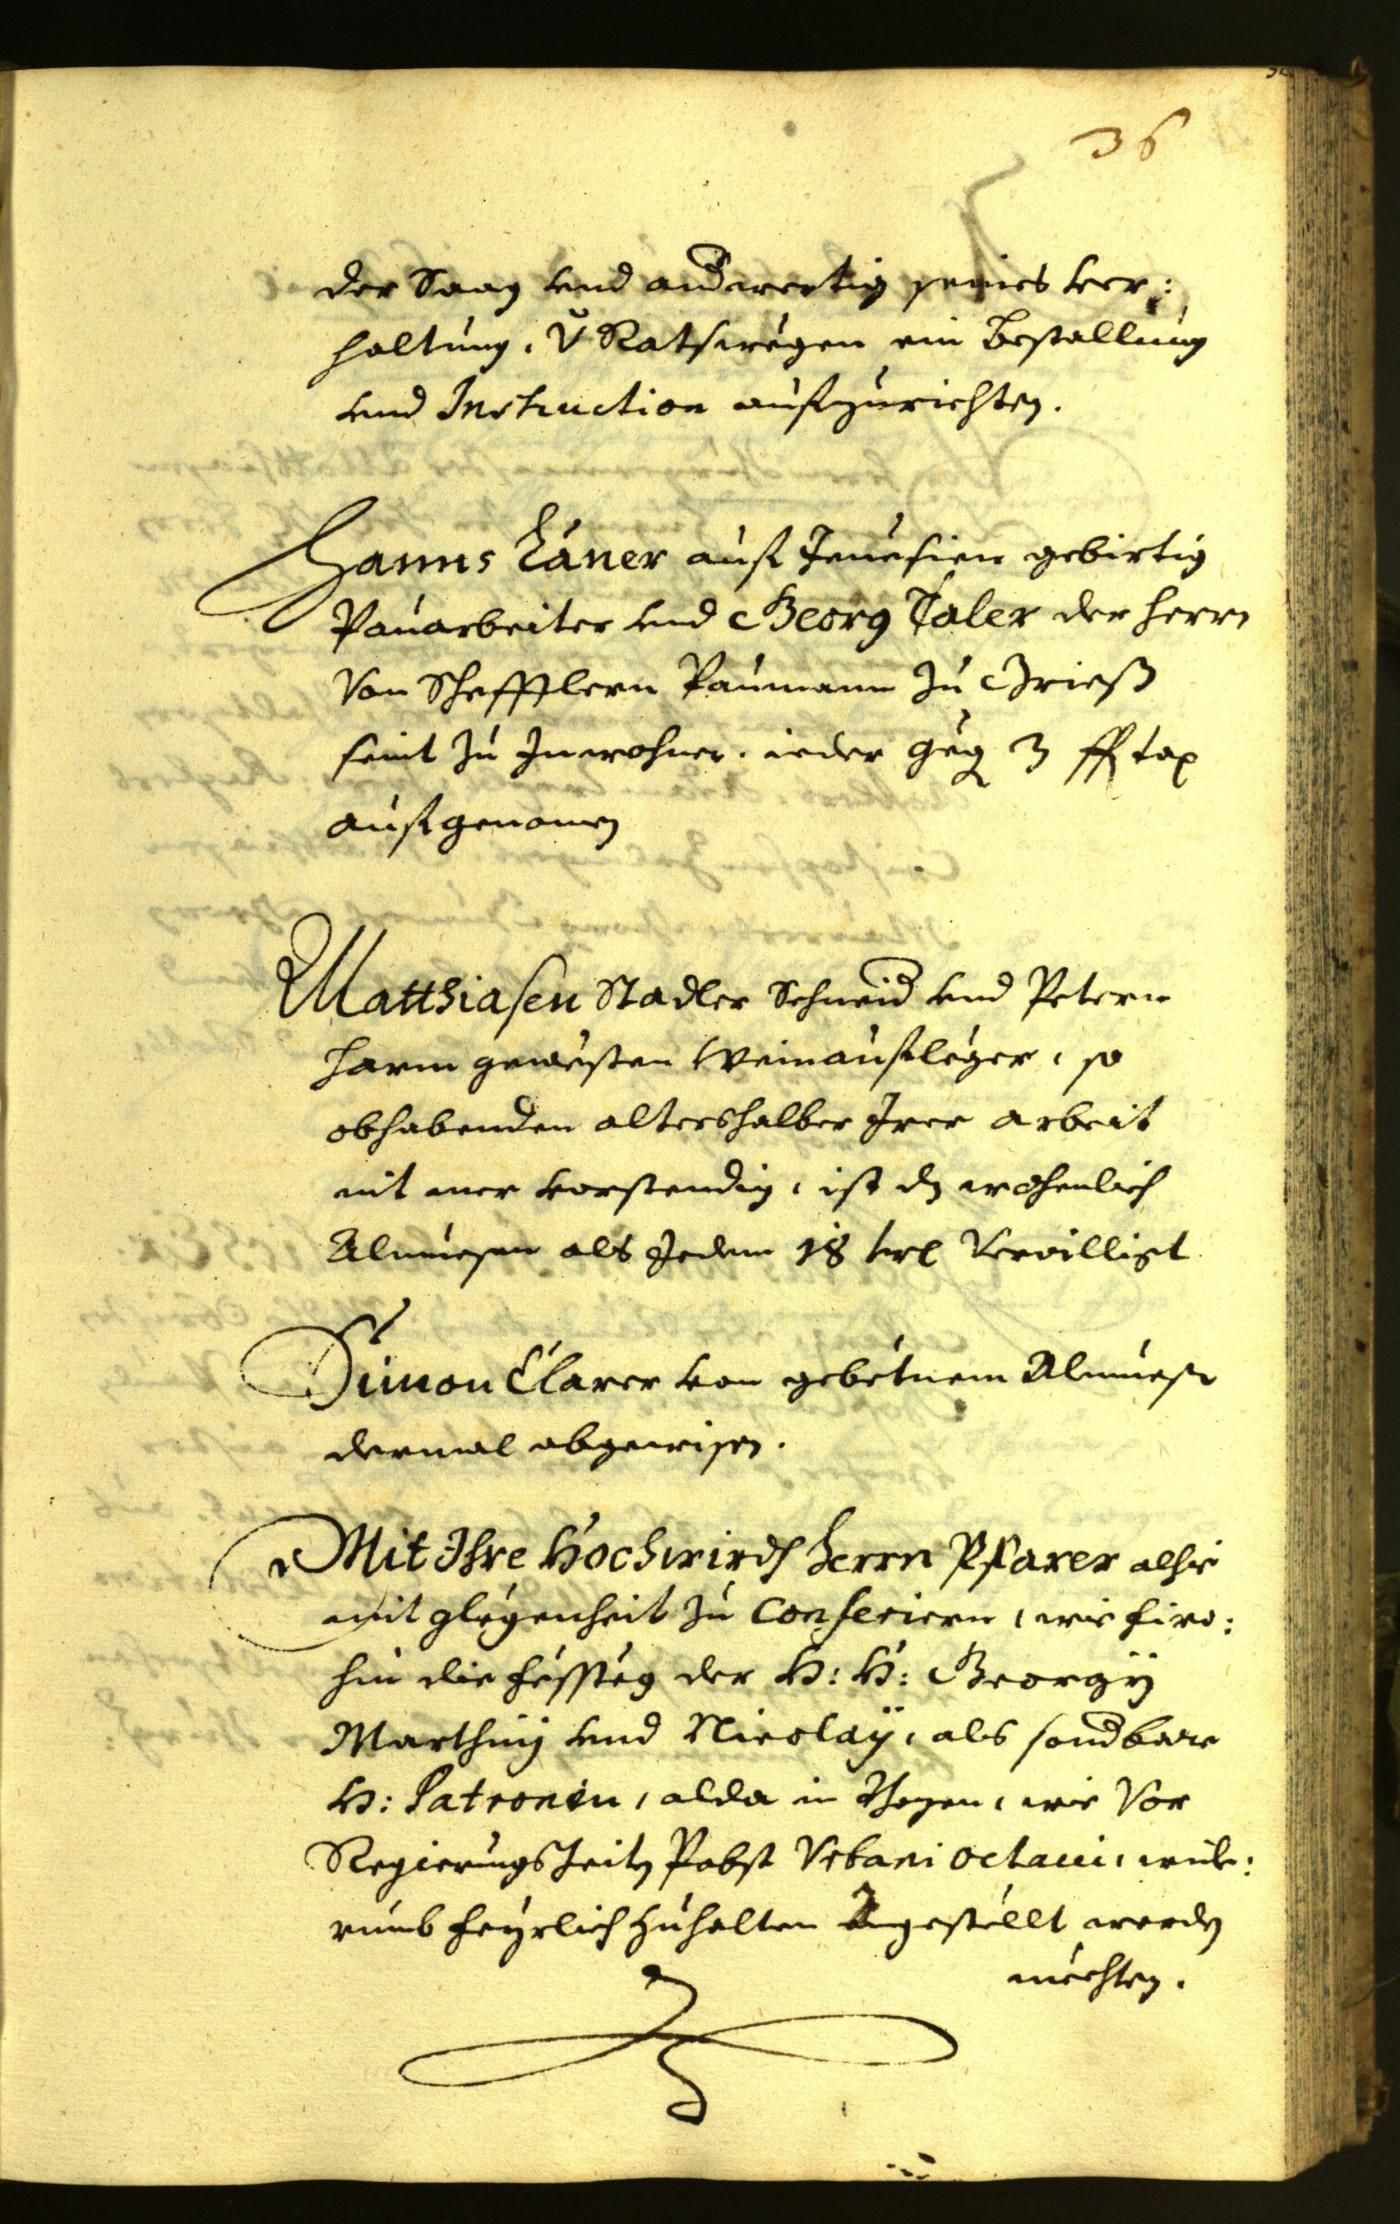 36
der Saag vnd anderwertig seines ver:
haltung. V Ratswegen ein Bestallung
vnd Instruction aufzurichten.
Hanns Laner auß Jenesien gebirtig
Pauarbeiter vnd Georg Taler der Herrn
von Schefftlern Paumann zu Grieß
seint zu Inwohner. ieder geg 3 ff tax
aufgenomen
Matthiasen Stadler Schneid vnd Petern
Harm gewesten Weinaußleger, so
obhabenden altershalber Irer arbeit
nit mer vorstendig, ist dz wochenlich
Almuesen als Jedem 18 krl Verwilligt
Simon Clarer von gebetnem Almuesen
dermal abgewisen.
Mit Ihre Hochwird Herrn Pfarer alhie
mit glegenheit zu Conferiern, wie firo:
hin die Festteg der H: H: Georgÿ
Marthinj vnd Nicolaÿ, als sonderbare
H: Patronen, alda in Bozen, wie Vor
Regierungs Zeitn Pabst Vrbani octaui, wide:
rumb feyrlich zuhalten angestellt werden
mechten.